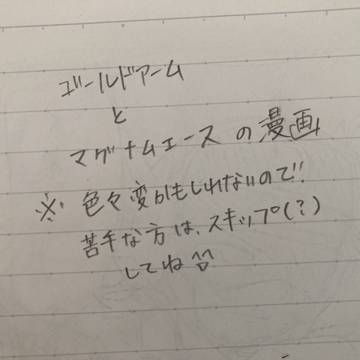 ゴールドアーム
と
マグナムエースの漫画
※色々変かもしれないので!!
苦手な方は、スキップ(?)
してね^^